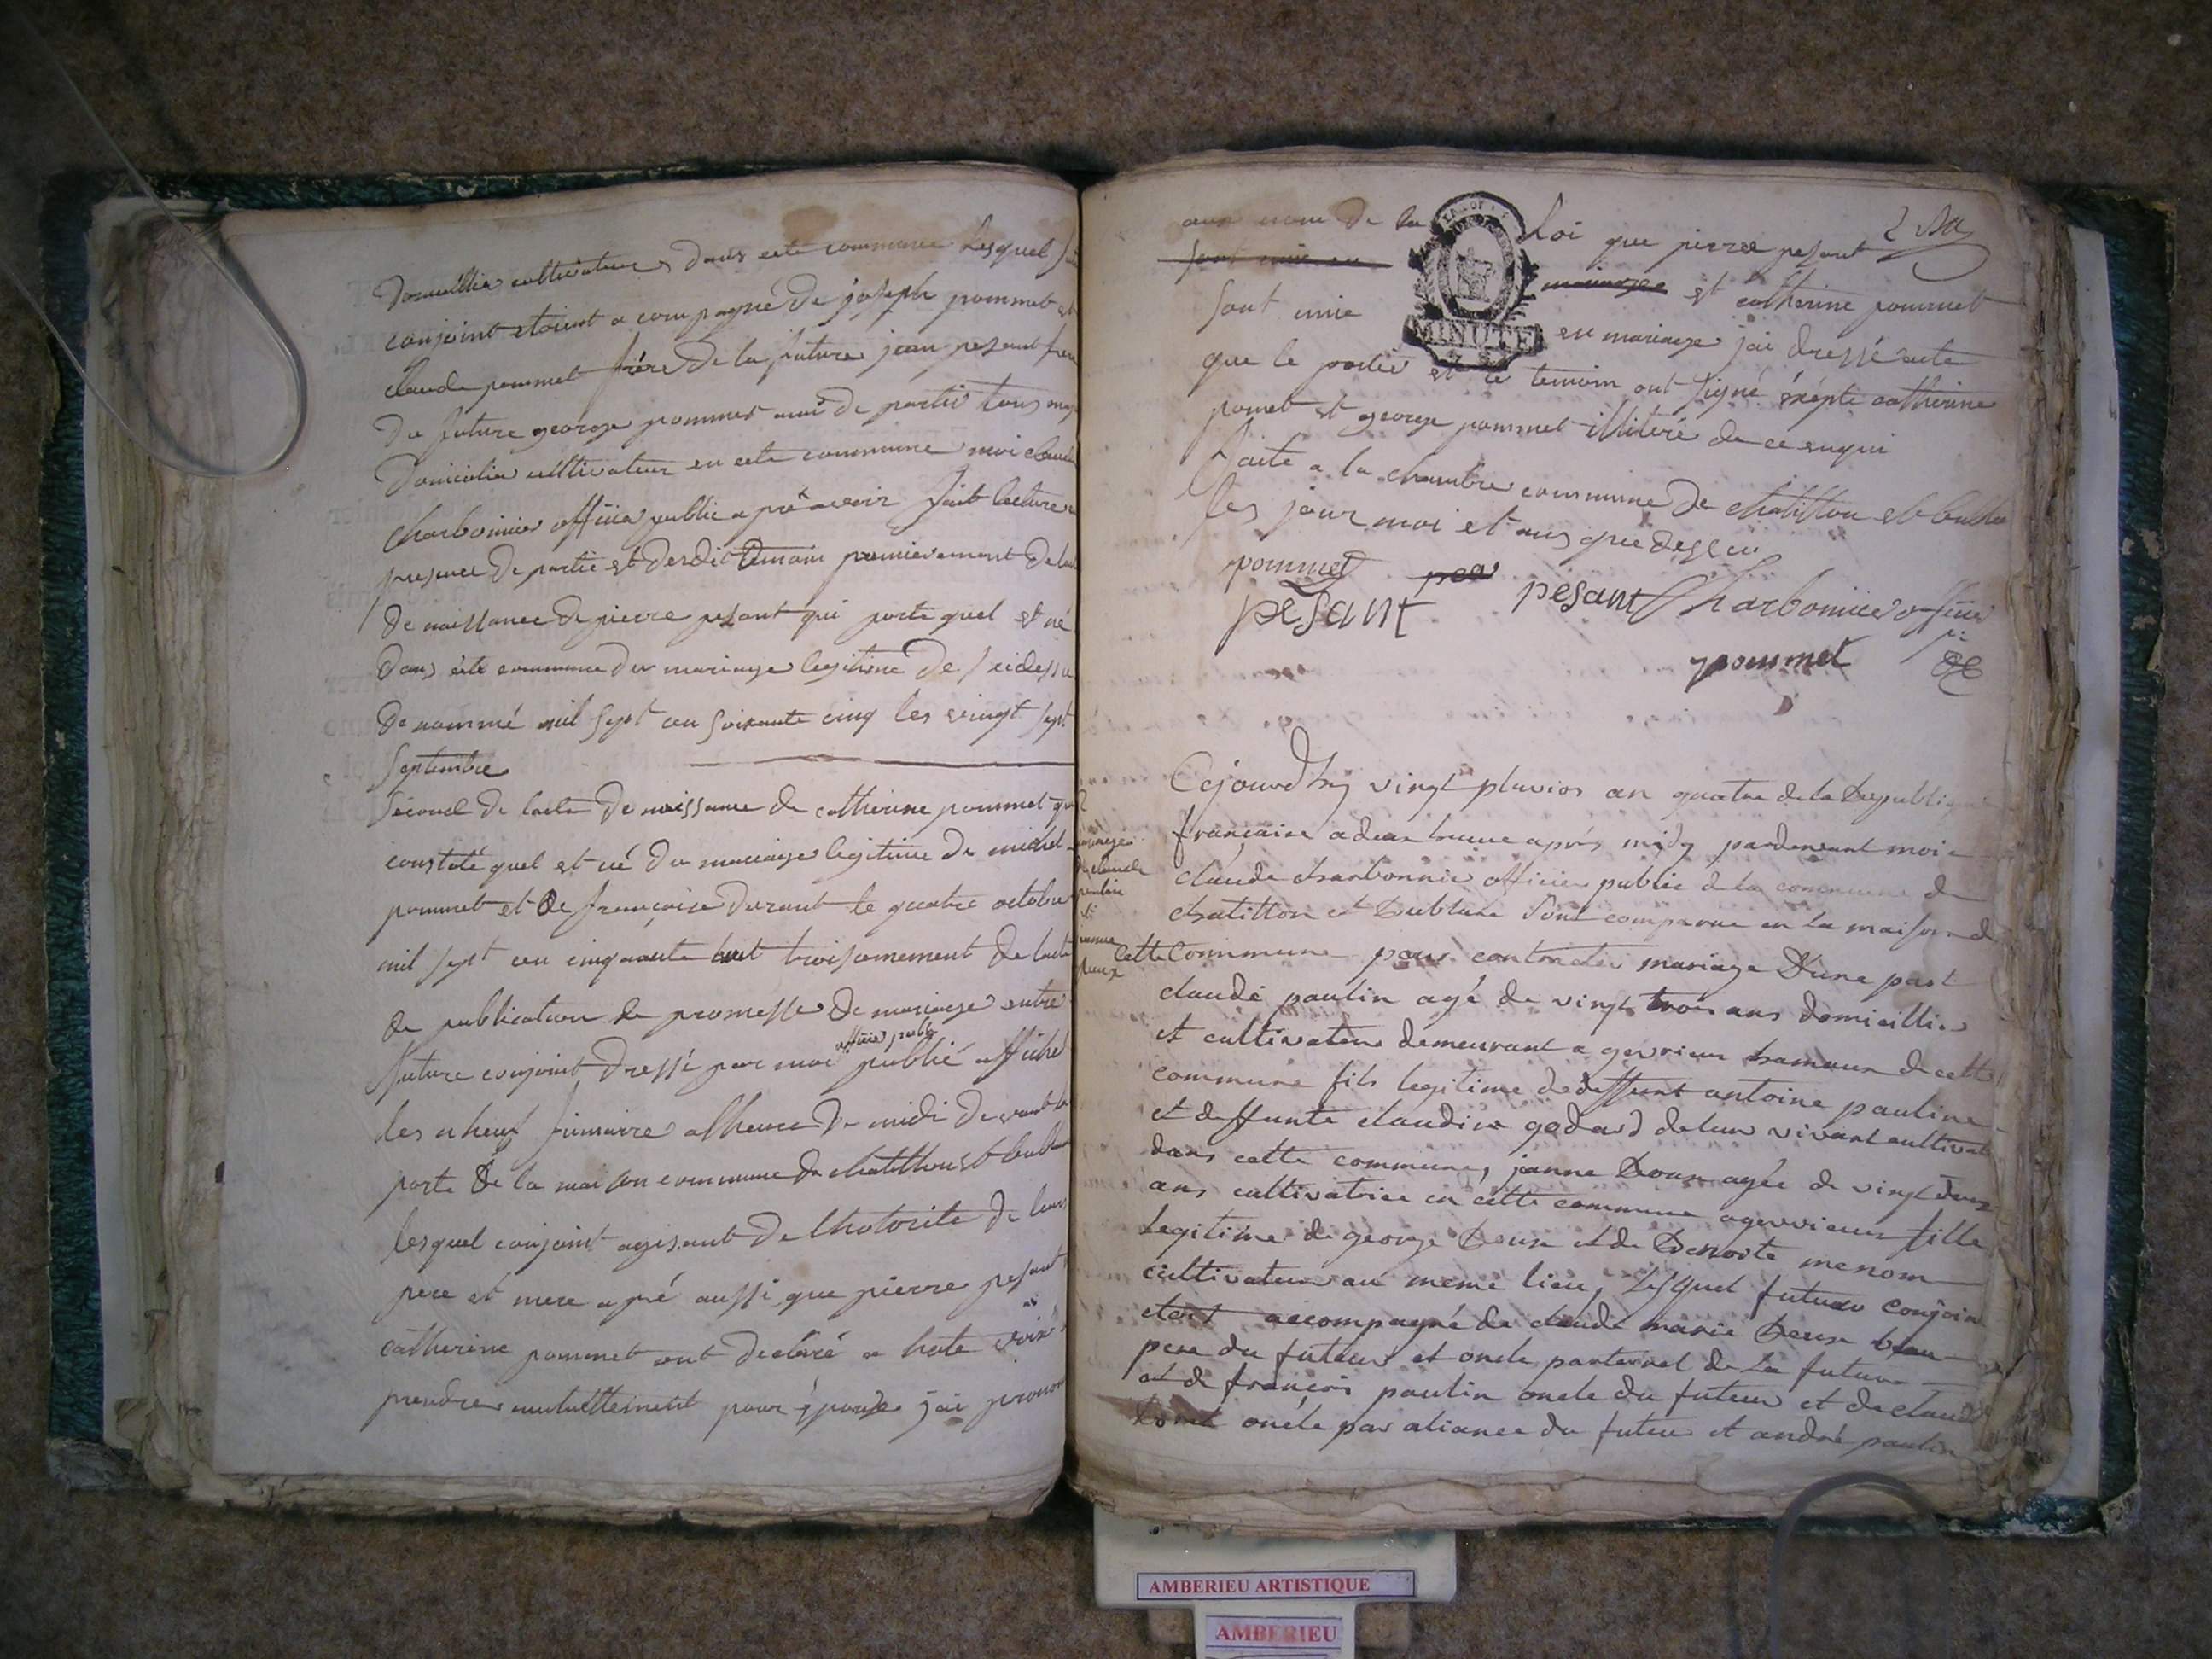 domicillier cultivateur dans cete commune Lesquel
conjoint etoient a compagné de joseph pommet et
claude pommet frére de la future jean pesant frere
du future george pommet ami de partie tous maj
domicilier cultivateur en cete commune moi claude
charbonnier officier public aprê avoir fait lecture en
presence de partie et desdit temoin premierement de lact
de naissance de pierre pesant qui porte quel est né
dans cete commune du mariage legitime de
de nommé mil sept cen soixante cinq les vingt sept
septembre
second de lacte de naissance de catherine pommet qui
constaté quel est né du mariage legitime de michel
pommet et de françoise durant le quatre octobre
mil sept cen cinquante huit troisomement de lacte
de publication de promesse de mariage entre
officier public
future conjoint dressé par moi publié affiché
les nheuf frimaire alheure de midi devant la
porte de la maison commune de chatillon et
lesquel conjoint agisant de lhotorite de leurs
pere et mere apré aussi que pierre pesant
catherine pommet ont declaré a hote voix
prendre mutuellement pour épouse jai prenon
aux nom de la Loi que pierre pesant
sont unie en mariage et catherine pommet
sont unie en mariage jai dressé acte
MINUTE
que le partie et le temoin ont signé exépte catherine
pomet et george pommet illiteré de ce enqui
faite a la chambre commune de chatillon et
les jour moi et ans que dessu
pommet pes pesant Charbonnier officier
pesant
pommet
mariage
de claude
paulin
et
janne
Doux
Cejourdhuy vingt pluvios an quatre de la Republique
française a deux heure aprés midy pardevant moi
claude charbonnier officier public de la commune de
chatillon et Sont comparue en la maison de
cette Commune pour contracter mariage D'une part
claude paulin agé de vingt trois ans domicillie
et cultivateur demeurant a gevrieux hameaux de cette
commune fils legitime de deffunt antoine pauline
et deffunte claudine godard de leur vivant cultivat
dans cette commune, janne Doux agée de vingt deux
ans cultivatrice en cette commune a gevrieux fille
legitime de george Doux et de Benoite menom
cultivateur au meme lieu, Lesquel futur conjoin
etoit accompagné de claude marie Doux beau
pere du futeur et oncle parternel de La future
et de françois paulin oncle du futeur et de claude
oncle par aliance du futeur et andré paulin
AMBERIEU ARTISTIQUE
AMBERIEU